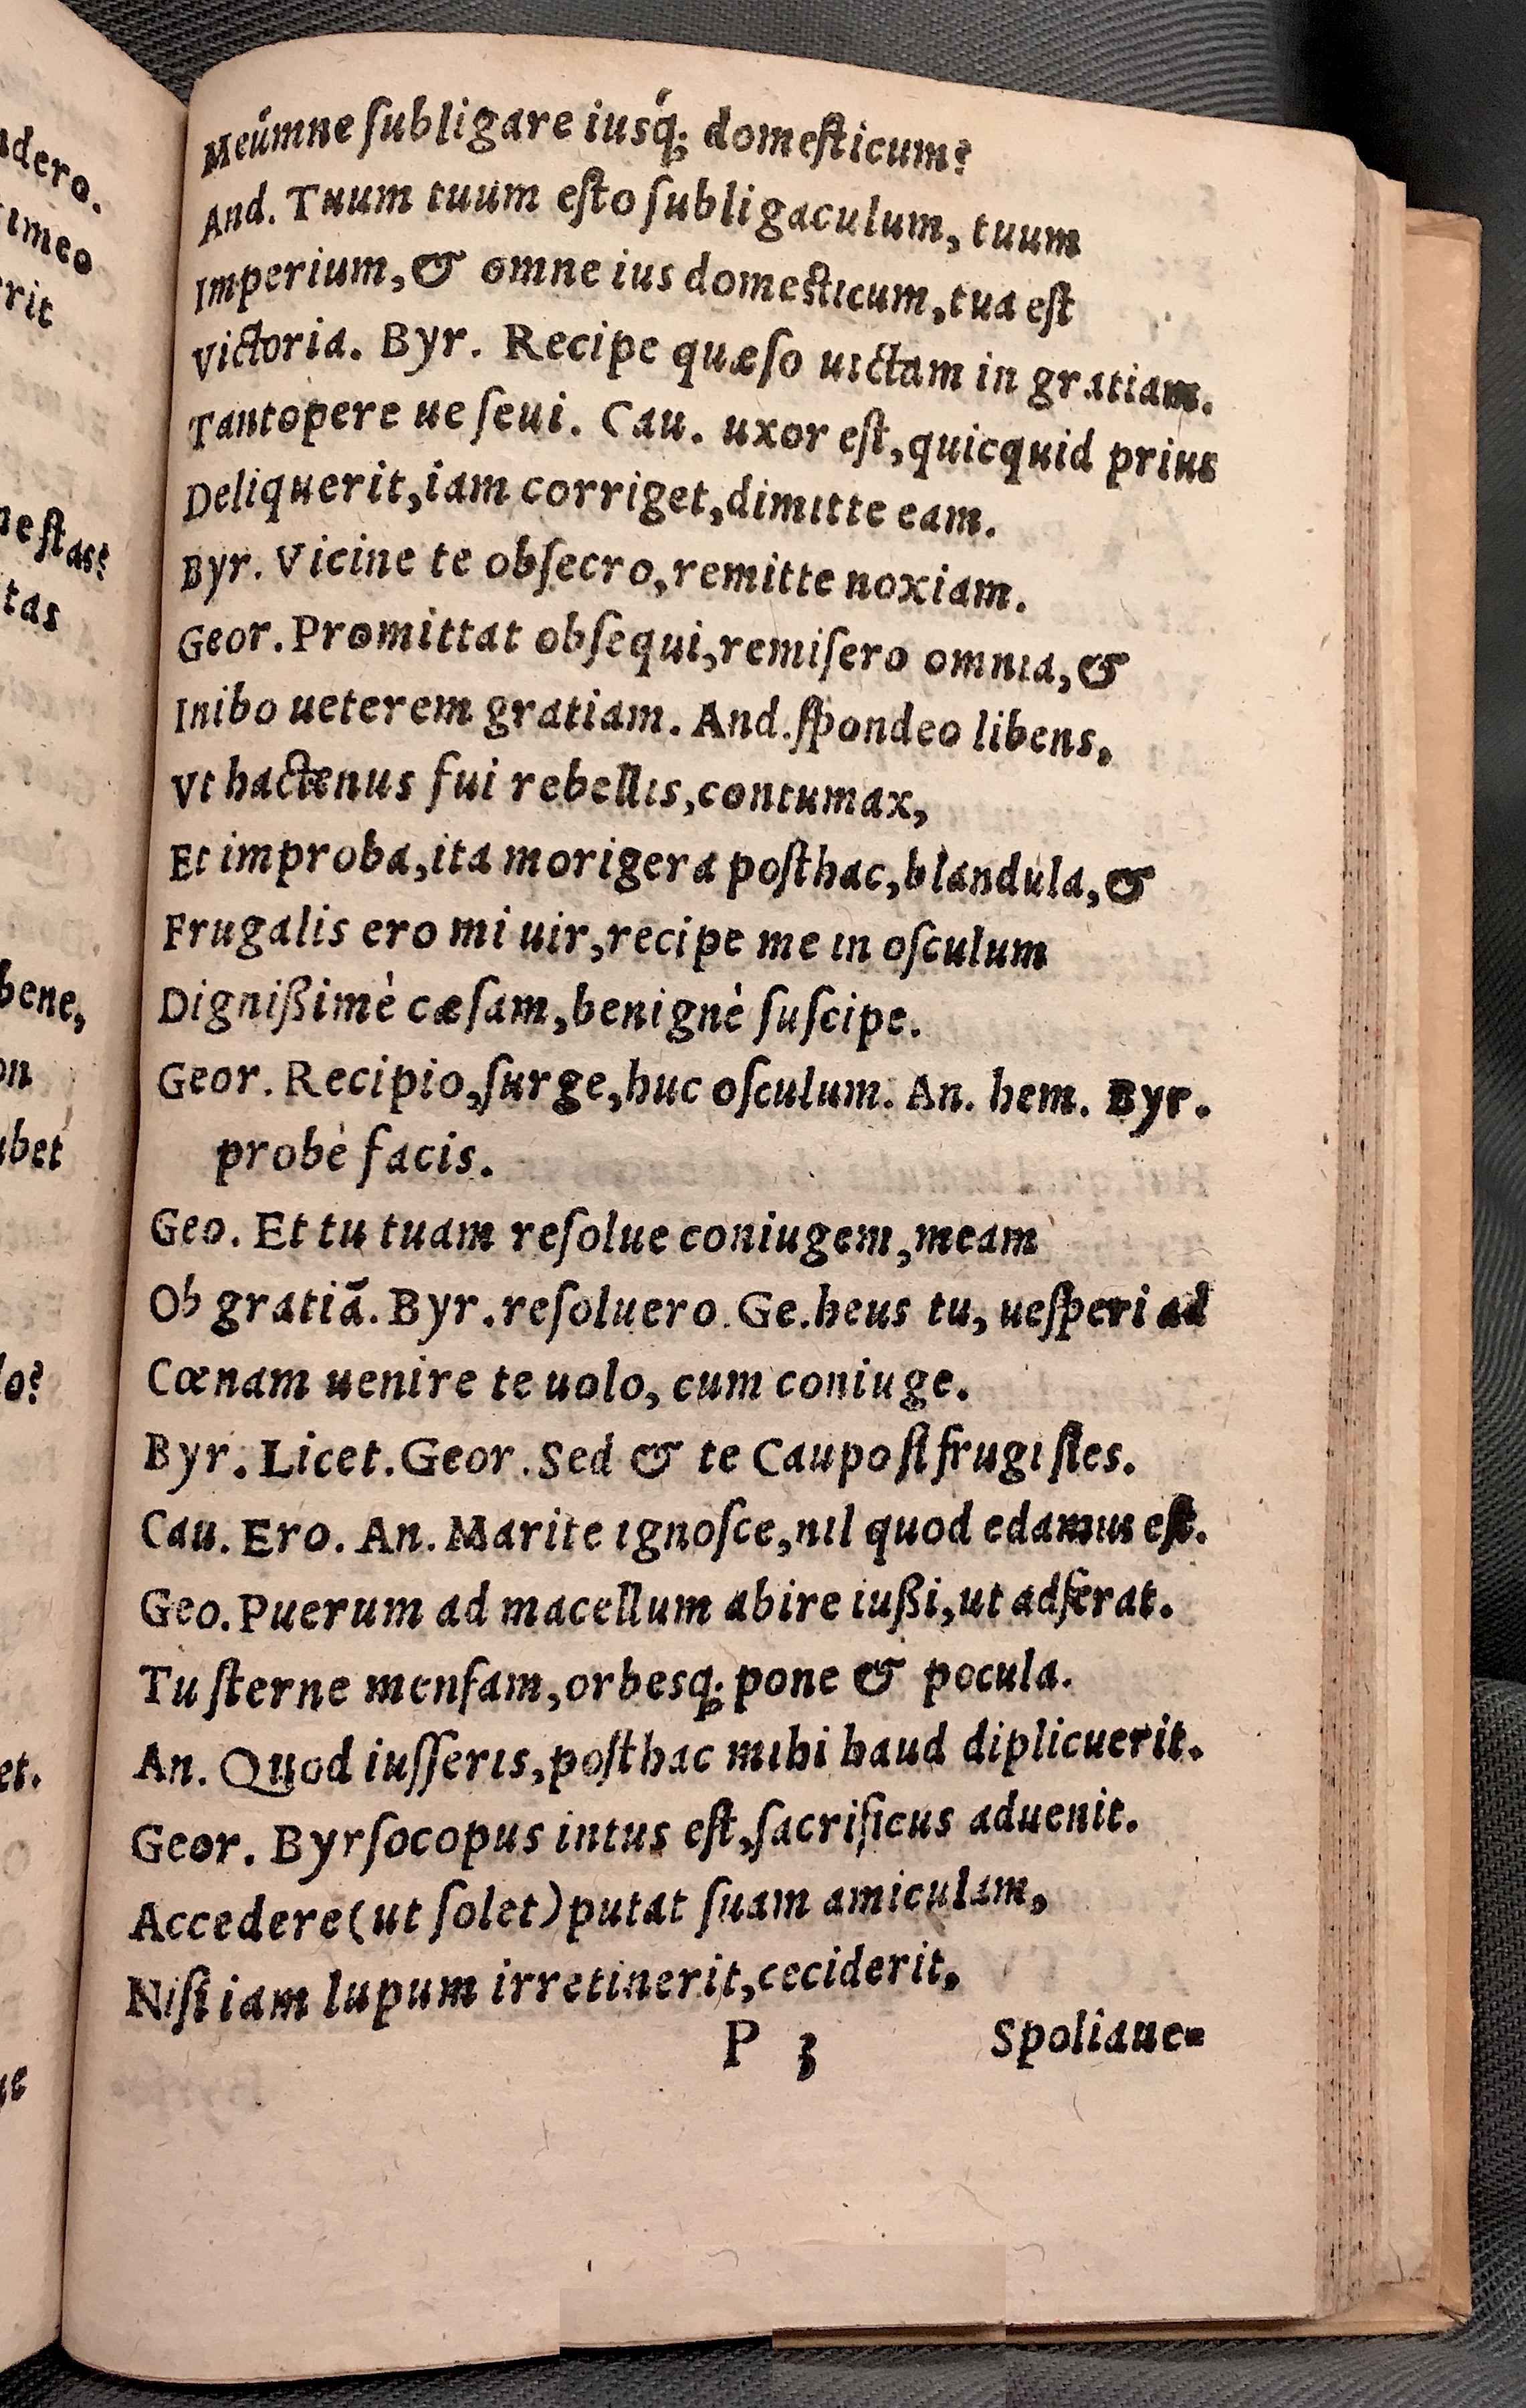 Meúmne ſubligare iusq́; domeſticum?
And. Tuum tuum eſto ſubligaculum, tuum
Imperium, & omne ius domeſticum, tua eſt
Victoria. Byr. Recipe quæſo uictam in gratiam.
Tantopere ue ſeui. Cau. uxor eſt, quicquid prius
Deliquerit, iam corriget, dimitte eam.
Byr. Vicine te obſecro, remitte noxiam.
Geor. Promittat obſequi, remiſero omnia, &
Inibo ueterem gratiam. And. ſpondeo libens.
Vt hactenus fui rebellis, contumax,
Et improba, ita morigera poſthac, blandula, &
Frugalis ero mi uir, recipe me in oſculum
Digniſsimè cæſam, benignè ſuſcipe.
Geor. Recipio, ſurge, huc oſculum. An. hem. Byr.
probè facis.
Geo. Et tu tuam reſolue coniugem, meam
Ob gratiā. Byr. reſoluero. Ge. heus tu, ueſperi ad
Cœnam uenire te uolo, cum coniuge.
Byr. Licet. Geor. Sed & te Caupo ſi frugi ſies.
Cau. Ero. An. Marite ignoſce, nil quod edamus eſt.
Geo. Puerum ad macellum abire iuſsi, ut adferat.
Tu ſterne menſam, orbesq; pone & pocula.
An. Quod iuſſeris, poſthac mihi haud diplicuerit.
Geor. Byrſocopus intus eſt, ſacrificus aduenit.
Accedere (ut ſolet) putat ſuam amiculam,
Niſi iam lupum irretinerit, ceciderit,
P 3 Spoliaue-
ndero.
timeo
rit
ne ſtas?
tas
bene,
on
ubet
lo?
et.
ue